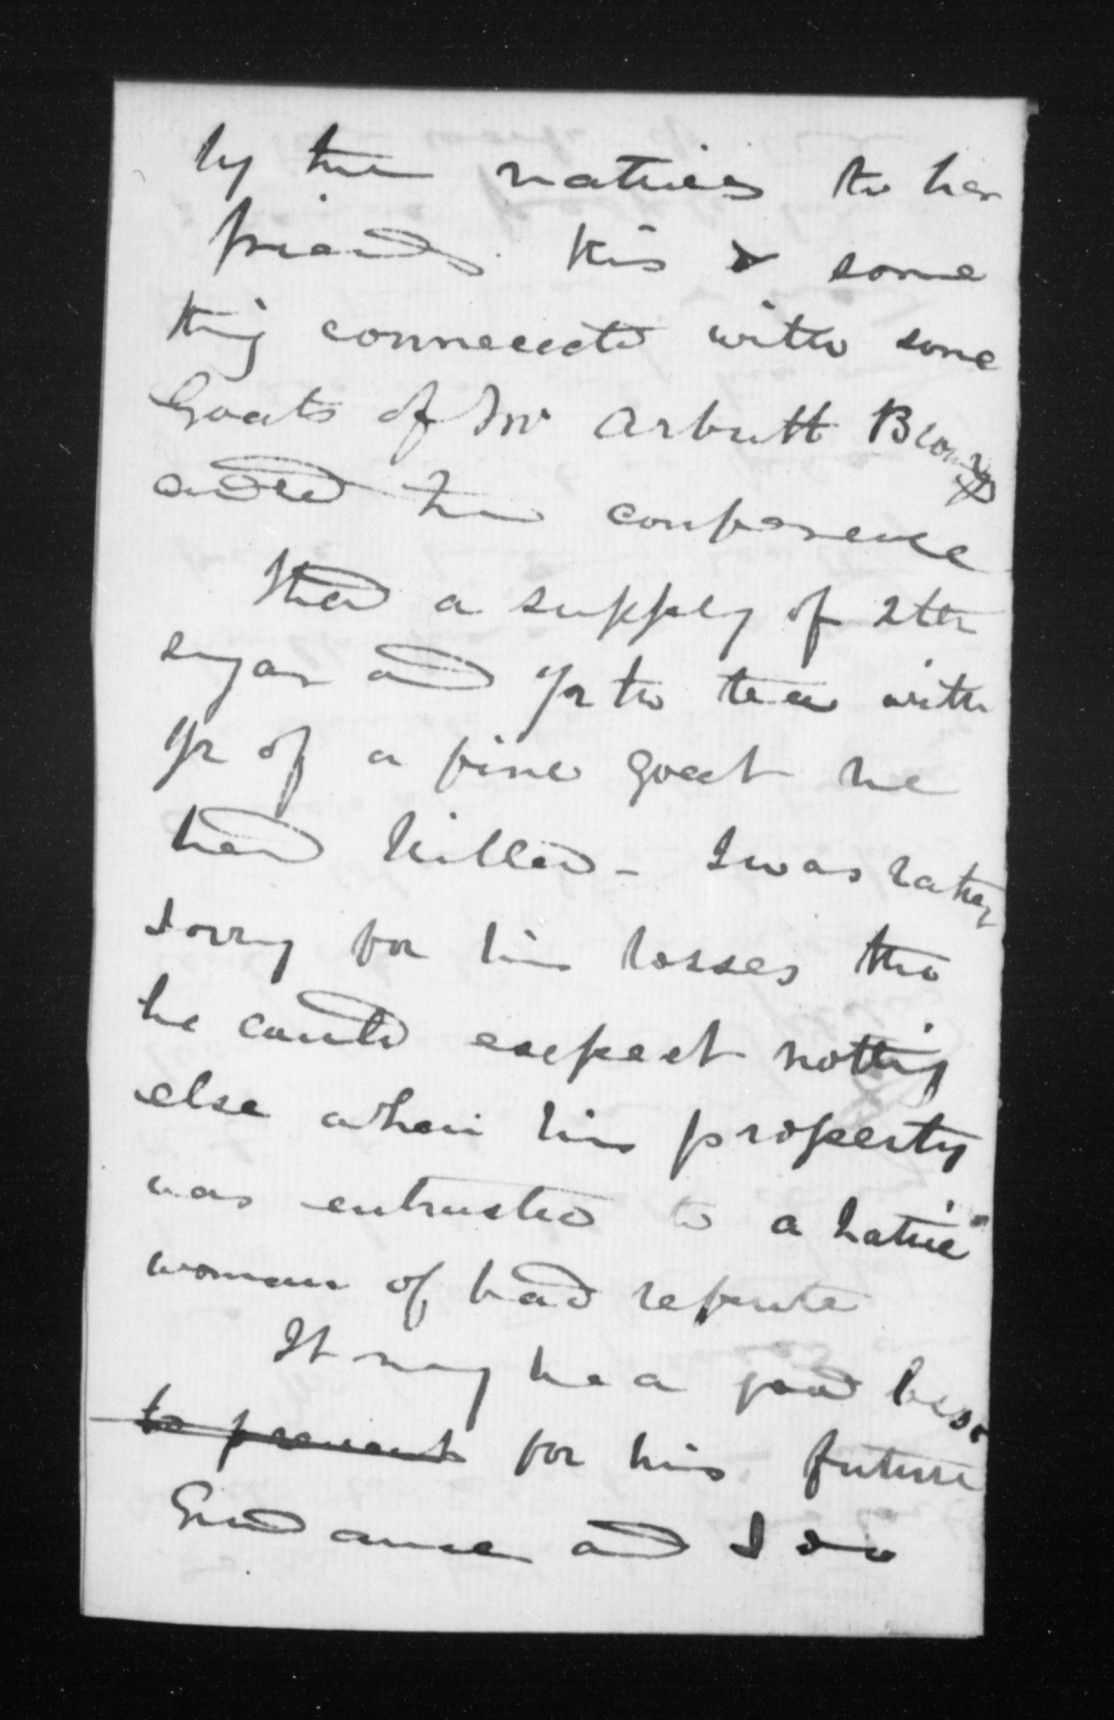 by the natives to her
friends this & some
thing connected with some
Goats of Mr Arbutt Brown
ended the conference
I had a supply of 2 lbs
sugar and ¼ lb tea with
¼ of a fine goat he
had killed - I was rather
sorry for his losses tho
he could expect nothing
else when his property
was entrusted to a native
woman of bad repute
It may be a good lesson
to prevent for his future
Guidance and I do